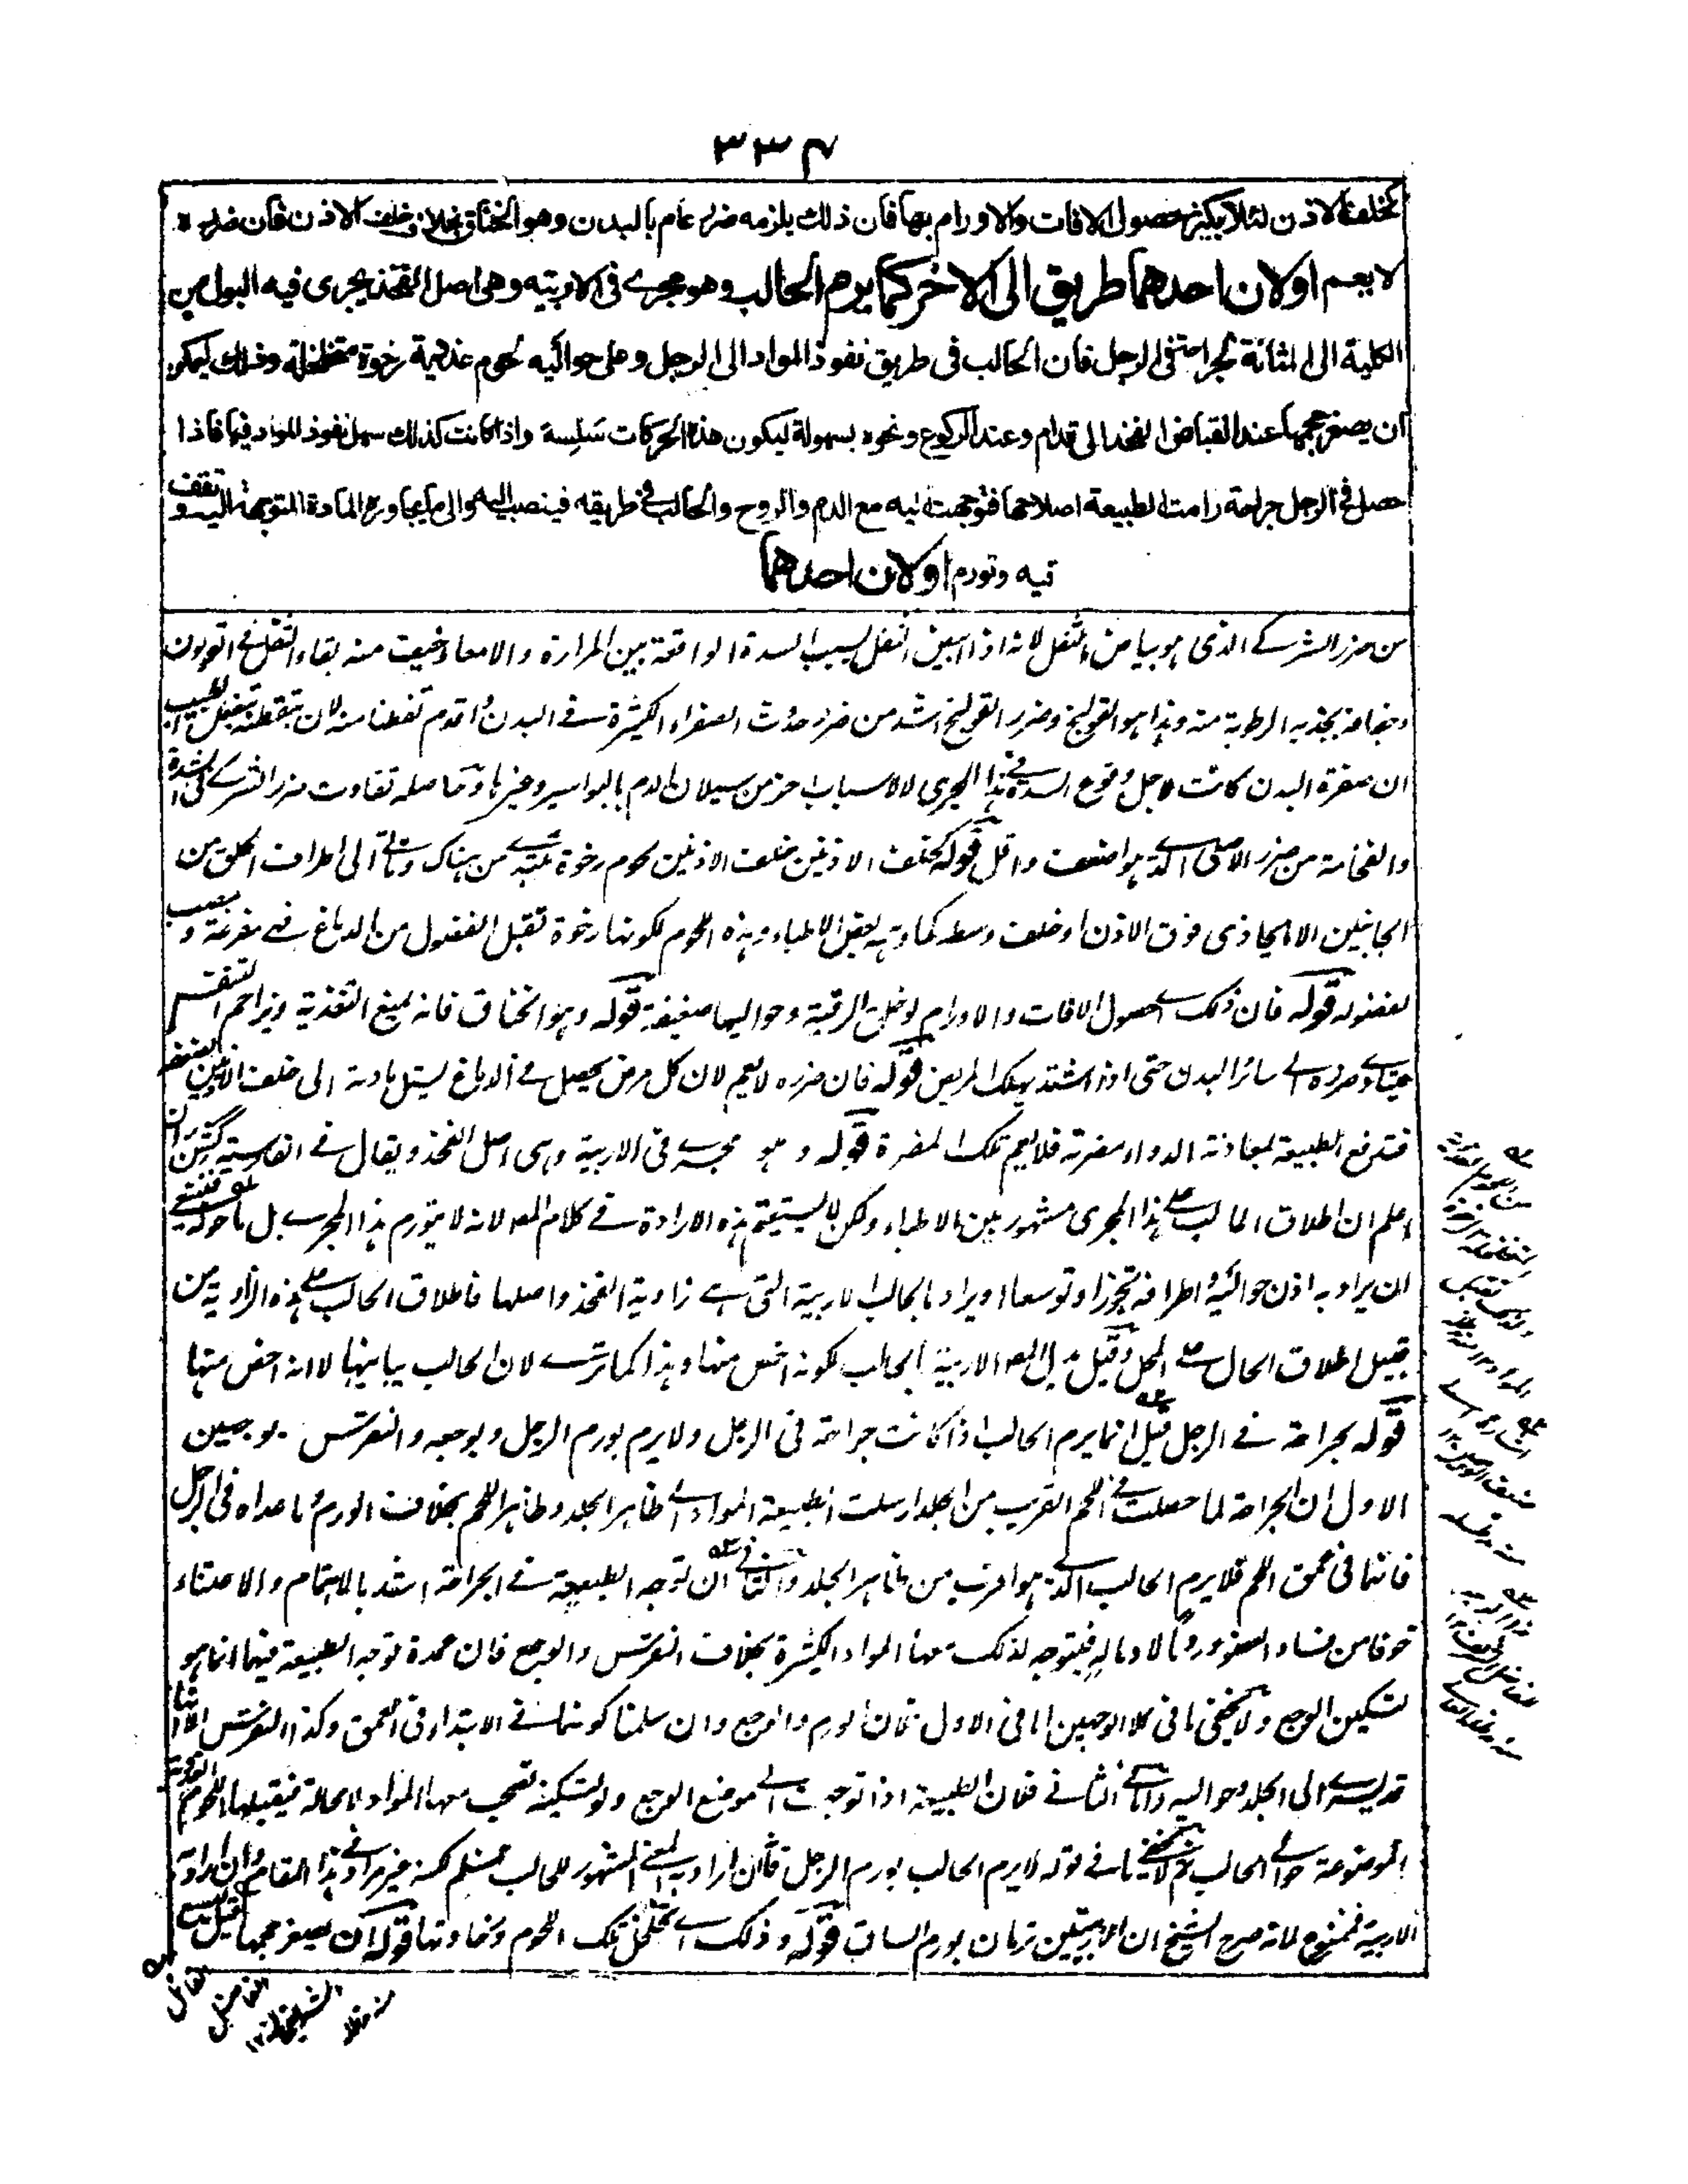 ٣٣٤
كخلف الاذن لئلا يكثر حصول الافات والاورام بها فان ذلك يلزمه ضرر عام بالبدن وهو الخناق بخلاف خلف الاذن فان ضرره
لا يعم اولان احدهما طريق الى الاخر كما يرم الحالب وهو مجرى فى الاربية وهى اصل الفخذ يجرى فيه البول من
الكلية الى المثانة لجراحة فى الرجل فان الحالب فى طريق نفوذ المواد الى الرجل وعلى حواليه لحوم غددية رخوة متخلخلة وذلك ليمكن
ان يصغر حجمها عند انقباض الفخذ الى قدام وعند الركوع ونحوه بسهولة ليكون هذه الحركات سلسة واذا كانت كذلك سهل نفوذ المواد فيها فاذا
حصل فى الرجل جراحة رامت الطبيعة اصلاحها فتوجهت اليه مع الدم والروح والحالب فى طريقه فينصب اليه والى ما يجاوره المادة المتوجهة اليه وتقف
فيه وتورم اولان احدهما
من ضرر الشركى الذى هو بياض الثفل لانه اذا ابيض الثفل بسبب السدة الواقعة بين المرارة والامعاء خيفت منه بقاء الثفل فى القولون
وجفافه بجذب الرطوبة منه وهذا هو القولنج وضرر القولنج اشد من ضرر حدوث الصفراء الكثيرة فى البدن واقدم تفطنا منه لان يتفطنه الطبيب
ان صفرة البدن كانت لاجل وقوع السدة فى هذا المجرى لا لاسباب اخر من سيلان الدم بالبواسير وغيرها وحاصله تفاوت ضرر الشركى فى الشدة
والفخامة من ضرر الاصلى الذى هو اضعف واقل قوله كخلف الاذنين خلف الاذنين لحوم رخوة من هناك وتاتى الى اطراف الحلق من
الجانبين الا ما يحاذى فوق الاذن او خلف وسطه كما وهمه بعض الاطباء وهذه اللحوم لكونها رخوة تقبل الفضول من الدماغ فهى مفرغة ومصب
لفضوله قوله فان ذلك اى حصول الافات والاورام لو خلق الرقبة وحواليها ضعيفة قوله وهو الخناق فانه يمنع التغذية ويزاحم التنفس
ضرره الى سائر البدن حتى اذا اشتد يهلك المريض قوله فان ضرره لا يعم لان كل مرض يحصل فى الدماغ ينتقل مادته الى خلف الاذنين
فتدفع الطبيعة بمعاونة الدواء مضرته فلا يعم تلك المضرة قوله وهو مجرى فى الاربية وهى اصل الفخذ ويقال فى الفارسية
اعلم ان اطلاق الحالب على هذا المجرى مشهور بين الاطباء ولكن لا يستقيم هذه الارادة فى كلام المص لانه لا يتورم هذا المجرى بل ما حوله فينبغى
ان يراد به اذن حواليه واطرافه تجوزا وتوسعا او يراد بالحالب الاربية التى هى زاوية الفخذ واصلها فاطلاق الحالب على هذه الزاوية من
قبيل اطلاق الحال على المحل وقيل الاربية الحالب لكونه اخص منها وهذا كما ترى لان الحالب يباينها لا انه اخص منها
قوله لجراحة فى الرجل قيل انما يرم الحالب اذا كانت جراحة فى الرجل ولا يرم بورم الرجل وبوجعه والنقرس بوجهين
الاول ان الجراحة لما حصلت فى اللحم القريب من الجلد ارسلت الطبيعة المواد الى ظاهر الجلد وظاهر اللحم بخلاف الورم وما عداه فى الرجل
فانها فى عمق اللحم فلا يرم الحالب الذى هو اقرب من ظاهر الجلد والثانى ان توجه الطبيعة فى الجراحة اشد بالاهتمام والاعتناء
خوفا من فساد العضو فيتوجه لذلك معها المواد الكثيرة بخلاف النقرس والوجع فان عمدة توجه الطبيعة فيها انما هو
لتسكين الوجع ولا يخفى ما فى كلا الوجهين اما فى الاول فان الورم والوجع وان سلمنا كونهما فى الابتداء فى العمق وكذا النقرس الا انها
قد يسرى الى الجلد وحواليه واما فى الثانى فلان الطبيعة اذا توجهت الى موضع الوجع ولو لتسكينه تصحب معها المواد لا محالة فيقبلها اللحوم الغددية
الموضوعة حوالى الحالب ثم لا يخفى ما فى قوله لا يرم الحالب بورم الرجل فانه ان اراد به المعنى المشهور للحالب فمسلم لكنه غير مراد فى هذا المقام وان اراد به
الاربية فممنوع لانه صرح الشيخ ان الاربيتين ترمان بورم الساق قوله وذلك اى تخلخل تلك اللحوم ورخاوتها قوله ان يصغر حجمها قيل